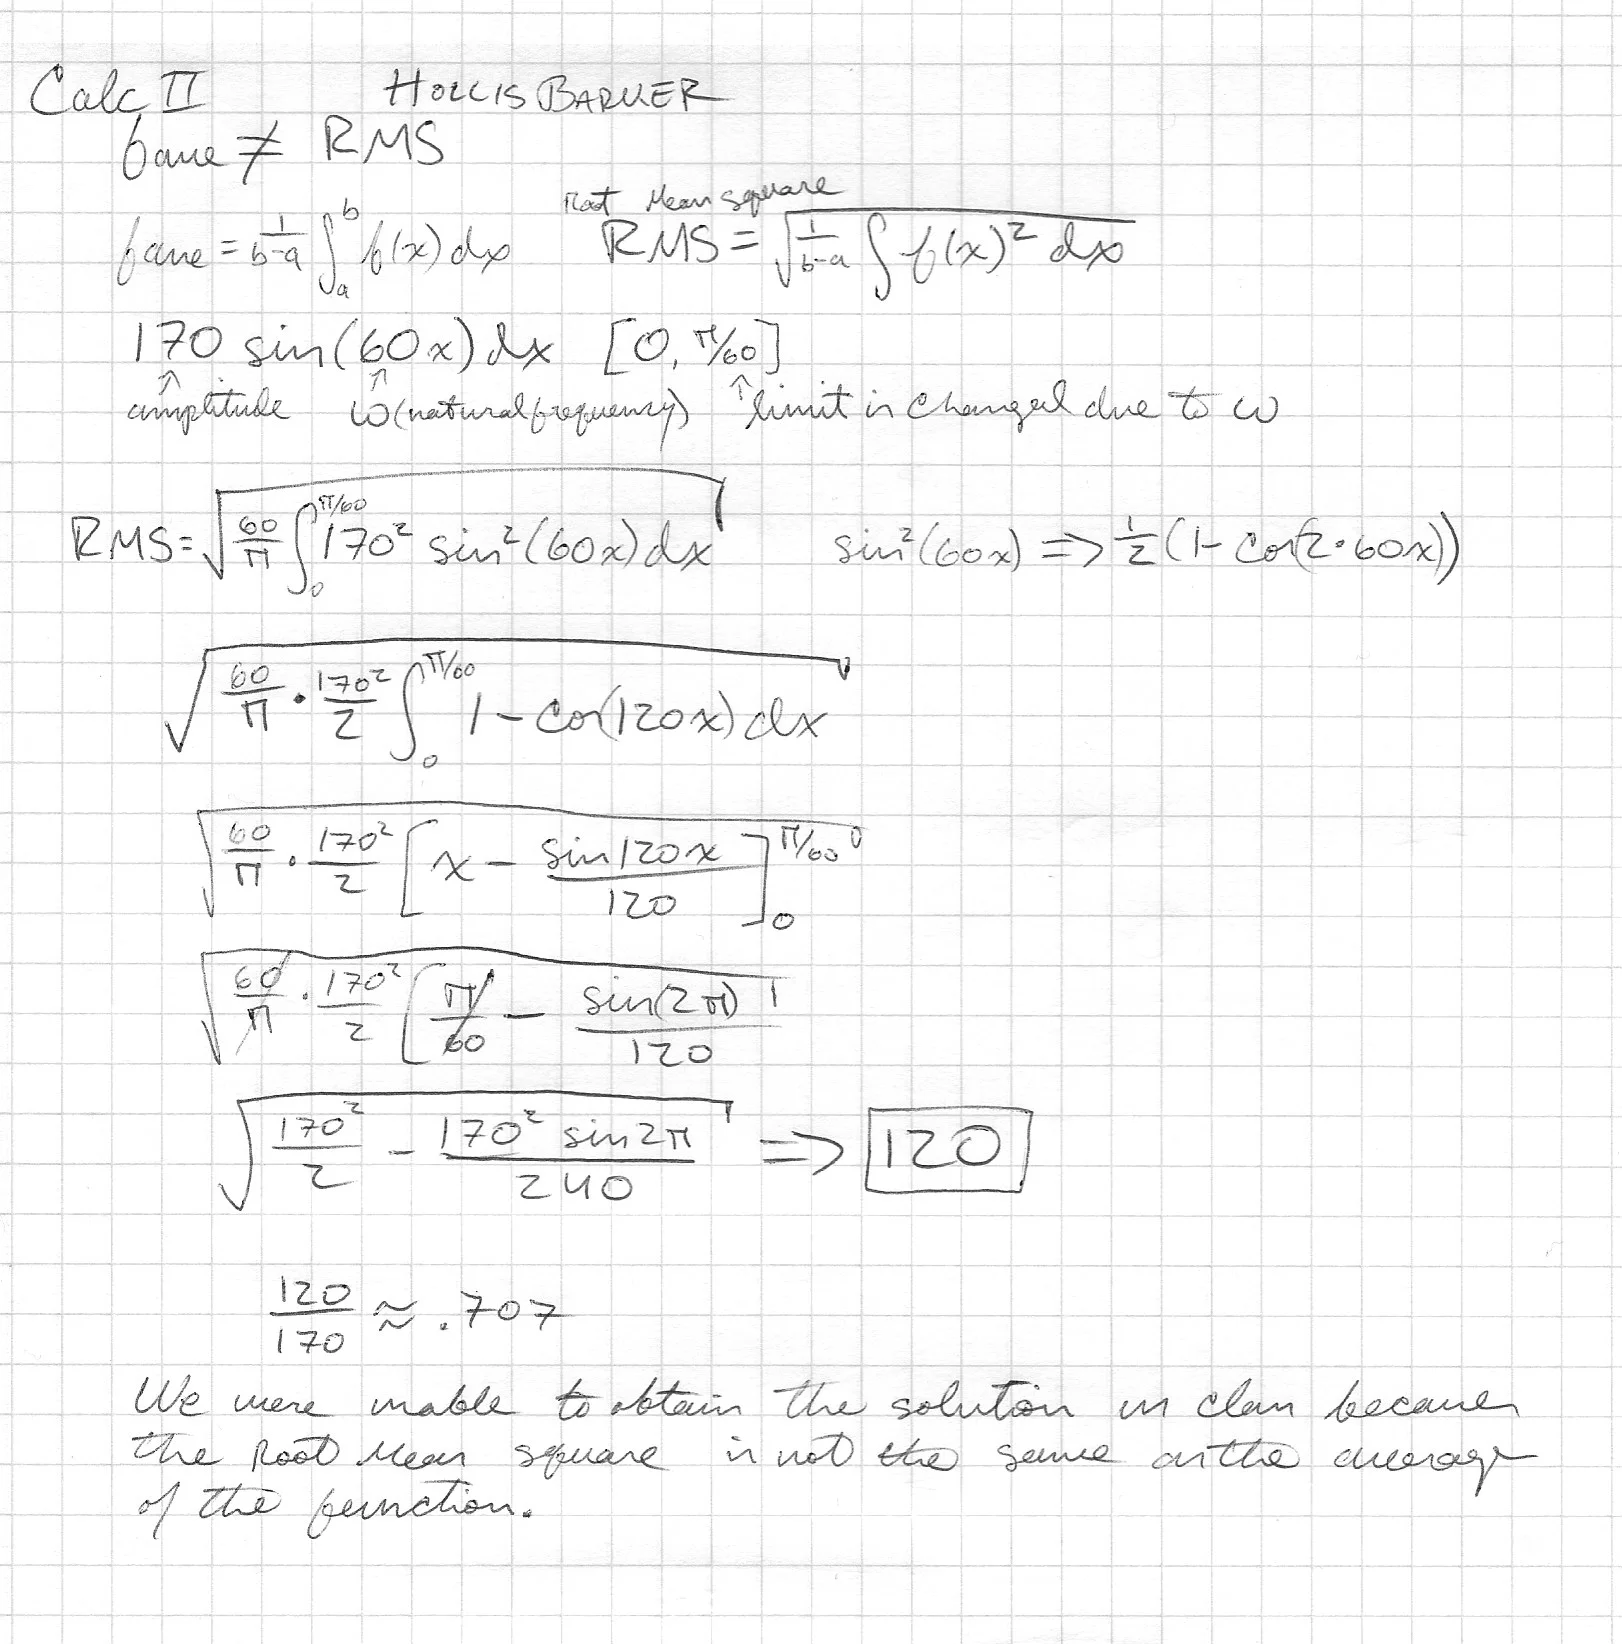 Calc II HOLLIS BARKER
fave ≠ RMS
Root Mean square
fave = 1/(b-a) ∫_a^b f(x) dx RMS = √(1/(b-a) ∫ f(x)² dx)
170 sin(60x) dx [0, π/60]
↑ ↑ ↑
amplitude ω (natural frequency) limit is changed due to ω
RMS = √(60/π ∫_0^{π/60} 170² sin²(60x) dx) sin²(60x) => 1/2 (1 - cos(2·60x))
√(60/π · 170²/2 ∫_0^{π/60} 1 - cos(120x) dx)
√(60/π · 170²/2 [x - sin120x/120]_0^{π/60})
√(60/π · 170²/2 [π/60 - sin(2π)/120
√(170²/2 - 170² sin2π/240) => 120
120/170 ≈ .707
We were unable to obtain the solution in class because
the Root Mean square is not the same as the average
of the function.